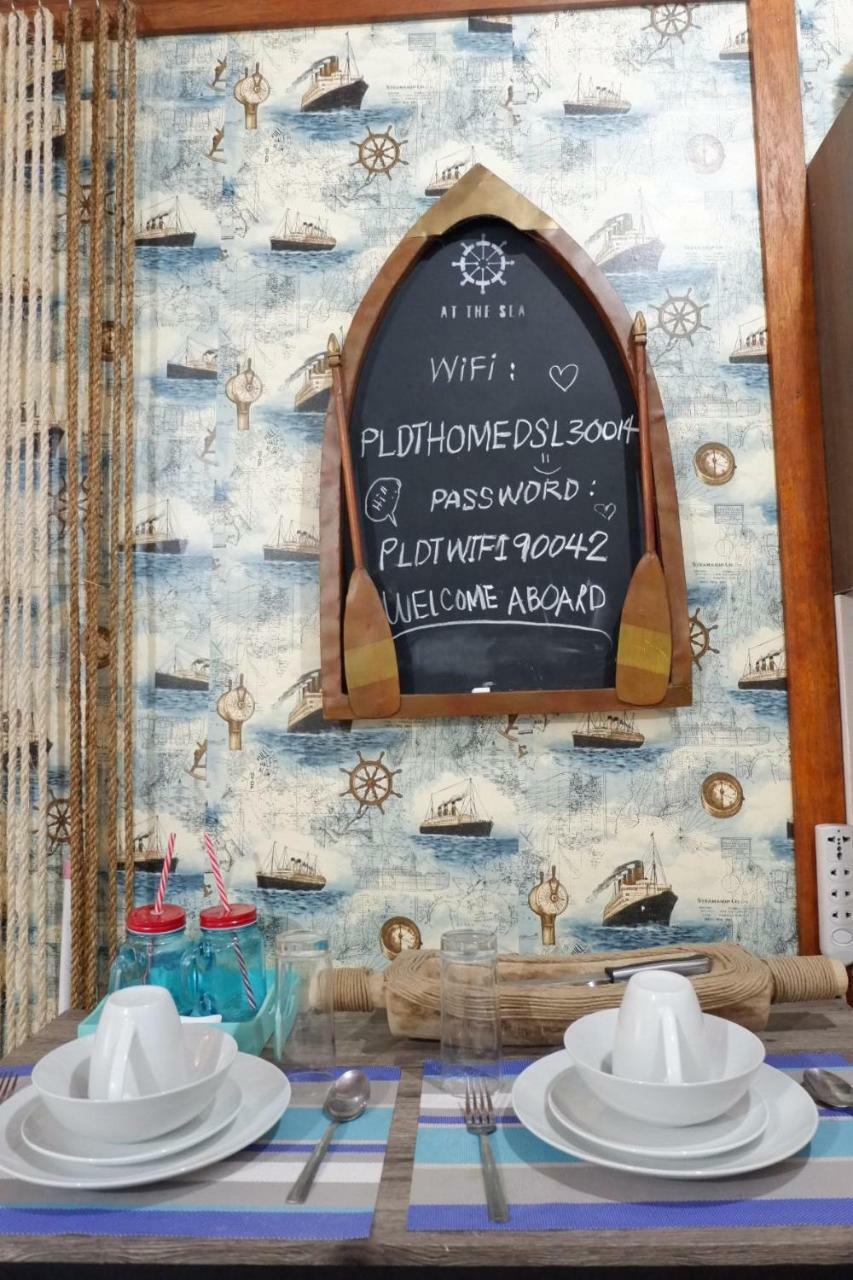 AT THE SEA
WiFi :
PLDTHOMEDSL30014
Hi!!
PASSWORD :
PLDTWIFI90042
WELCOME ABOARD